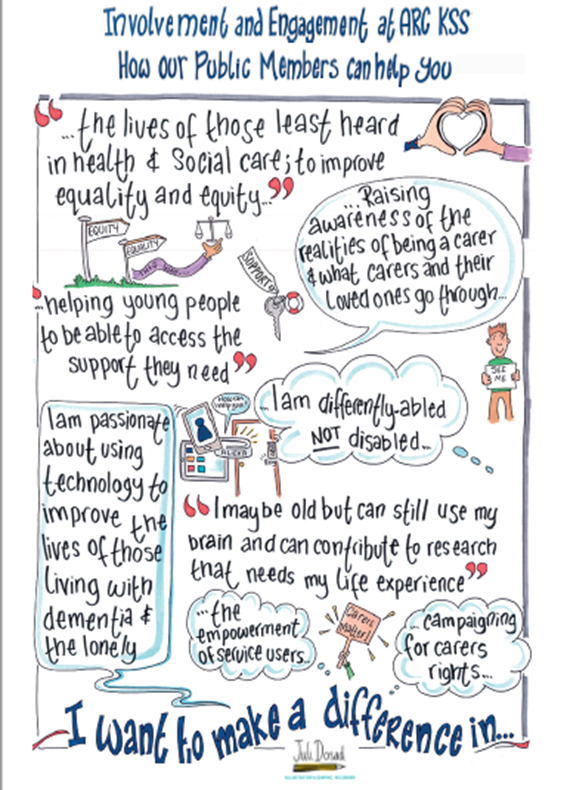 Involvement and Engagement at ARC KSS
How our Public Members can help you
“...the lives of those least heard
in health & Social care; to improve
equality and equity...”
EQUITY
EQUALITY
SUPPORT
...Raising
awareness of the
realities of being a carer
& what carers and their
loved ones go through...
“...helping young people
to be able to access the
support they need”
SEE
ME
I am passionate
about using
technology to
improve the
lives of those
living with
dementia &
the lonely
How can
I help you?
ALEXA
...I am differently-abled
NOT disabled...
“I may be old but can still use my
brain and can contribute to research
that needs my life experience”
...the
empowerment
of service users...
Carers
Matter!
... campaigning
for carers
rights...
I want to make a difference in...